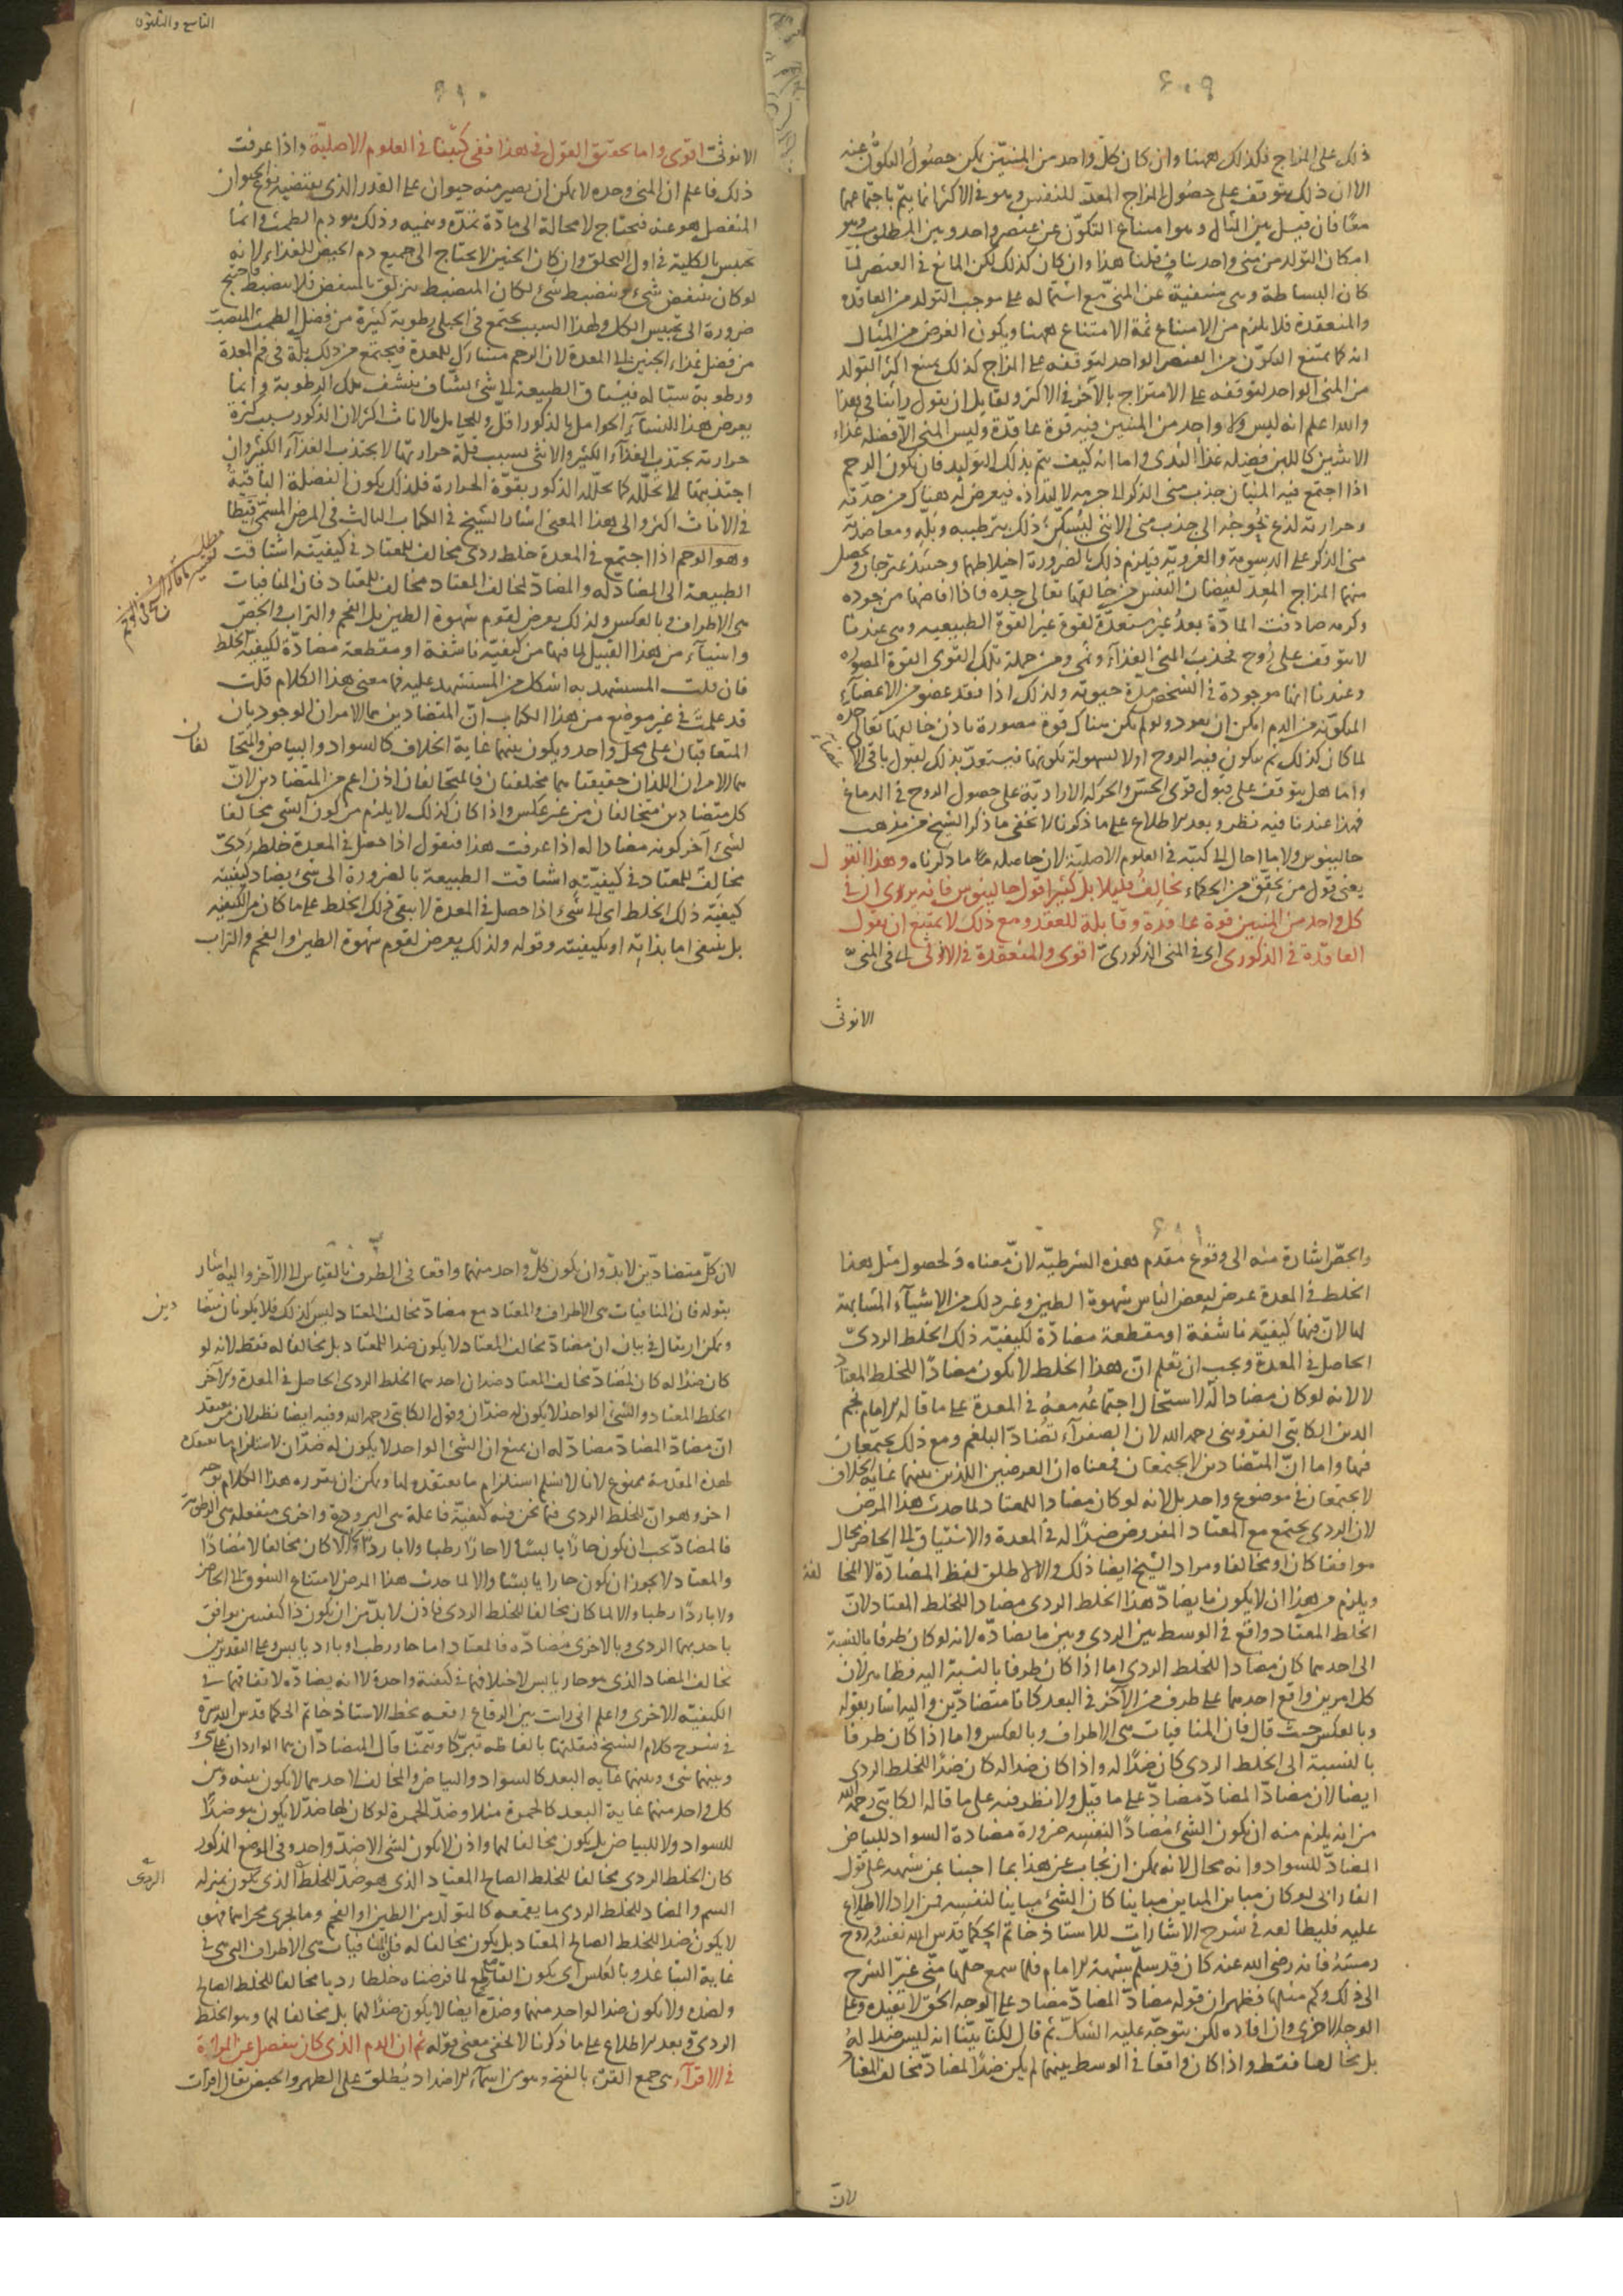 ٦٠٩
ذلك على المزاج فكذلك ههنا وان كان كل واحد من المنيين يمكن حصول التكون عنه
الا ان ذلك يتوقف على حصول المزاج المعد للنفس وهو في الاكثر انما يتم باجتماعهما
معا فان قيل بين المثال وهو امتناع التكون عن عنصر واحد وبين المطلوب وهو
امكان التولد من مني واحد تناف قلنا هذا وان كان كذلك لكن المانع في العنصر لما
كان البساطة وهي منتفية عن المني مع اشتماله على موجب التولد من العاقدة
والمنعقدة فلا يلزم من الامتناع ثمة الامتناع ههنا ويكون الغرض من المثال
انه كما يمتنع التكون من العنصر الواحد لتوقفه على المزاج كذلك يمتنع اكثر التولد
من المني الواحد لتوقفه على الامتزاج بالآخر في الاكثر ولقايل ان يقول رأينا في هذا
والله اعلم انه ليس ولا واحد من المنيين فيه قوة عاقدة وليس المني الا فضلة غذاء
الانثيين كاللبن فضلة غذاء الثدي واما انه كيف يتم بذلك التوليد فان يكون الرحم
اذا اجتمع فيه المنيان جذب مني الذكر الى جرمه لالتذاذه فيعرض له هناك من حدته
وحرارته لذع يحوجه الى جذب مني الانثى ليسكن ذلك بترطيبه وبله ومعاضدته
مني الذكر على الدسومة والغروية فيلزم ذلك بالضرورة اختلاطهما وحينئذ يمتزجان ويحصل
منهما المزاج المعد لفيضان النفس من خالقها تعالى جده فاذا افاضها من جوده
وكرمه صادفت المادة بعد غير مستعدة لقوة غير القوة الطبيعية وهي عندنا
لا تتوقف على روح فجذب المني الغذاء ونمى ومن جملة تلك القوى القوة المصورة
وعندنا انها موجودة في الشخص مدة حيوته ولذلك اذا فقد عضو من الاعضاء
المكونة من الدم امكن ان يعود ولو لم يكن هناك قوة مصورة باذن خالقها تعالى جده
لما كان كذلك ثم يتكون فيه الروح اولا لسهولة تكونها فيستعد بذلك لقبول باقي الاعضاء
واما هل يتوقف على قبول قوى الحس والحركة الارادية على حصول الروح في الدماغ
فهذا عندنا فيه نظر وبعد الاطلاع على ما ذكرنا لا يخفى ما ذكر الشيخ من مذهب
جالينوس ولا ما احال الى كتبه في العلوم الاصلية لان حاصله ما ذكرناه وهذا القول
يعني قول من يحقق من الحكماء يخالف قليلا بل كثيرا قول جالينوس فانه يرى ان في
كل واحد من المنيين قوة عاقدة وقابلة للعقد ومع ذلك لا يمتنع ان يقول
العاقدة في الذكوري اي في المني الذكوري اقوى والمنعقدة في الانوثي اي في المني
الانوثي
التاسع والثلثون
٦١٠
الانوثي اقوى واما تحقيق القول في هذا ففي كتبنا في العلوم الاصلية واذا عرفت
ذلك فاعلم ان المني وحده لا يمكن ان يصير منه حيوان على القدر الذي يقتضيه نوع الحيوان
المنفصل هو عنه فيحتاج لا محالة الى مادة تمده وتنميه وذلك هو دم الطمث وانما
يحبس بالكلية في اول التخلق وان كان الجنين لا يحتاج الى جميع دم الحيض للغذاء لانه
لو كان ينتفض شيء وينضبط شيء لكان المنضبط ينزلق بالمنتفض فلا ينضبط فاحتيج
ضرورة الى تحبيس الكل ولهذا السبب يجتمع في الحبلى رطوبة كثيرة من فضل الطمث المنصب
من فضل غذاء الجنين الى المعدة لان الرحم مشارك للمعدة فيجتمع من ذلك بلة في فم المعدة
ورطوبة سيالة فيشتاق الطبيعة الى شيء نشاف ينشف تلك الرطوبة وانما
يعرض هذا للنساء الحوامل بالذكور اقل وللحوامل بالاناث اكثر لان الذكور بسبب كثرة
حرارته يجتذب الغذاء الكثير والانثى بسبب قلة حرارتها لا يجتذب الغذاء الكثير وان
اجتذبتها لا تحلله كما يحلله الذكور بقوة الحرارة فلذلك يكون الفضلة الباقية
في الاناث اكثر والى هذا المعنى اشار الشيخ في الكتاب الثالث في المرض المسمى قيطا
وهو الوحم اذا اجتمع في المعدة خلط ردي مخالف للمعتاد في كيفيته اشتاقت
الطبيعة الى المضاد له والمضاد لمخالف المعتاد مخالف للمعتاد فان المنافيات
هي الاطراف وبالعكس ولذلك يعرض لقوم شهوة الطين بل الفحم والتراب والجص
واشياء من هذا القبيل لما فيها من كيفية ناشفة او مقطعة مضادة لكيفية الخلط
فان قلت المستشهد به اشكل من المستشهد عليه فما معنى هذا الكلام قلت
قد علمت في غير موضع من هذا الكتاب ان المتضادين هما الامران الوجوديان
المتعاقبان على محل واحد ويكون بينهما غاية الخلاف كالسواد والبياض والمتخا
لفان
هما الامران اللذان حقيقتاهما مختلفتان فالمتخالفان اذن اعم من المتضادين لان
كل متضادين متخالفان من غير عكس واذا كان كذلك لا يلزم من كون الشيء مخالفا
لشيء آخر كونه مضادا له اذا عرفت هذا فنقول اذا حصل في المعدة خلط ردي
مخالف للمعتاد في كيفيته اشتاقت الطبيعة بالضرورة الى شيء يضاد كيفيته
كيفية ذلك الخلط اي الى شيء اذا حصل في المعدة لا يبقى ذلك الخلط على ما كان من الكيفية
بل ينتفي اما بذاته او بكيفيته وقوله ولذلك يعرض لقوم شهوة الطين والفحم والتراب
٦١١
والجص اشارة منه الى وقوع مقدم هذه الشرطية لان معناه ولحصول مثل هذا
الخلط في المعدة عرض لبعض الناس شهوة الطين وغير ذلك من الاشياء المشابهة
لها لان فيها كيفية ناشفة او مقطعة مضادة لكيفية ذلك الخلط الردي
الحاصل في المعدة ويجب ان تعلم ان هذا الخلط لا يكون مضادا للخلط المعتاد
لا لانه لو كان مضادا له لاستحال اجتماعه معه في المعدة على ما قاله الامام نجم
الدين الكاتبي القزويني رحمه الله لان الصفراء تضاد البلغم ومع ذلك يجتمعان
فيها واما ان المتضادين لا يجتمعان فمعناه ان العرضين اللذين بينهما غاية الخلاف
لا يجتمعان في موضوع واحد بل لانه لو كان مضادا للمعتاد لما حدث هذا المرض
لان الردي يجتمع مع المعتاد المفروض ضدا له في المعدة والاشتياق الى الحاضر محال
موافقا كان او مخالفا ومراد الشيخ ايضا ذلك والا لاطلق لفظ المضادة لا المخا
لفة
ويلزم من هذا ان لا يكون ما يضاد هذا الخلط الردي مضادا للخلط المعتاد لان
الخلط المعتاد واقع في الوسط بين الردي وبين ما يضاده لانه لو كان طرفا بالنسبة
الى احدهما كان مضادا للخلط الردي اما اذا كان طرفا بالنسبة اليه فظاهر لان
كل امرين واقع احدهما على طرف من الآخر في البعد كانا متضادين واليه اشار بقوله
وبالعكس حيث قال فان المنافيات هي الاطراف وبالعكس واما اذا كان طرفا
بالنسبة الى الخلط الردي كان ضدا له واذا كان ضدا له كان ضدا للخلط الردي
ايضا لان مضاد المضاد مضاد على ما قيل ولا نظر فيه على ما قاله الكاتبي رحمه الله
من انه يلزم منه ان يكون الشيء مضادا لنفسه ضرورة مضادة السواد للبياض
المضاد للسواد وانه محال لانه يمكن ان يجاب عن هذا بما اجبنا عن شبهه على قول
الفارابي لو كان مباين المباين مباينا كان الشيء مباينا لنفسه فمن اراد الاطلاع
عليه فليطالعه في شرح الاشارات للاستاذ خاتم الحكما قدس الله نفسه وروح
رمسه فانه رضي الله عنه كان قد سلم شبهة الامام فلما سمع حلها مني غير الشرح
الى ذلك وكم مثلها فظهر ان قوله مضاد المضاد مضاد على الوجه الحق لا يفيده وعلى
الوجه الاخرى وان افاده لكن يتوجه عليه الشك ثم قال لكنا بينا انه ليس ضدا له
بل مخالفا فقط واذا كان واقعا في الوسط بينهما لم يكن ضدا لمضاد مخالف المعتاد
لان
لان كل متضادين لا بد وان يكون كل واحد منهما واقعا في الطرف بالقياس الى الآخر واليه اشار
بقوله فان المنافيات هي الاطراف والمعتاد مع مضاد مخالف المعتاد ليس كذلك فلا يكونان متضا
دين
ويمكن ان يقال في بيان ان مضاد مخالف المعتاد لا يكون ضدا للمعتاد بل مخالفا له فقط لانه لو
كان ضدا له كان لمضاد مخالف المعتاد ضدان احدهما الخلط الردي الحاصل في المعدة والآخر
الخلط المعتاد والشيء الواحد لا يكون له ضدان وقول الكاتبي رحمه الله وفيه ايضا نظر لان من يعتقد
ان مضاد المضاد مضاد له ان يمنع ان الشيء الواحد لا يكون له ضدان لاستلزام ما يعتقده
لهذه المقدمة ممنوع لانا لا نسلم استلزام ما يعتقده لها ويمكن ان يقرر هذا الكلام بوجه
آخر وهو ان للخلط الردي فيما نحن فيه كيفية فاعلة هي البرودة واخرى منفعلة هي الرطوبة
فالمضاد يجب ان يكون حارا يابسا لا حارا رطبا ولا باردا والا كان مخالفا لا مضادا
والمعتاد لا يجوز ان يكون حارا يابسا والا لما حدث هذا المرض لامتناع الشوق الى الحاضر
ولا باردا رطبا والا لما كان مخالفا للخلط الردي فاذن لا بد من ان يكون ذا كيفيتين يوافق
باحديهما الردي وبالاخرى مضاده فالمعتاد اما حار رطب او بارد يابس وعلى التقديرين
يخالف المضاد الذي هو حار يابس لاختلافهما في كيفية واحدة لا انه يضاده لاتفاقهما في
الكيفية الاخرى واعلم اني رأيت بين الرقاع رقعة بخط الاستاذ خاتم الحكما قدس الله سره
في شرح كلام الشيخ فنقلتها بالفاظه تبركا وتيمنا قال المتضادان هما الواردان على شيء
وبينهما غاية البعد كالسواد والبياض والمخالف لاحدهما لا يكون بينه وبين
كل واحد منهما غاية البعد كالحمرة مثلا وضد الحمرة لو كان لها ضد لا يكون هو ضدا
للسواد ولا للبياض بل يكون مخالفا لهما واذن لا يكون لشيء الا ضد واحد وفي الموضع المذكور
كان الخلط الردي مخالفا للخلط الصالح المعتاد الذي هو ضد للخلط الذي يكون بمنزلة
الردي
السم والمضاد للخلط الردي ما يقمعه كالمتولد من الطين او الفحم وما يجري مجراهما فهو
لا يكون ضدا للخلط الصالح المعتاد بل يكون مخالفا له فان المنافيات هي الاطراف التي هي في
غاية التباعد وبالعكس اي يكون القاطع لما فرضناه خلطا رديا مخالفا للخلط الصالح
ولضده ولا يكون ضدا لواحد منهما وضده ايضا لا يكون ضدا لهما بل مخالفا لهما وهو الخلط
الردي وبعد الاطلاع على ما ذكرنا لا يخفى معنى قوله ثم ان الدم الذي كان ينفصل عن المرأة
في الاقراء هي جمع القرء بالفتح وهو من اسماء الاضداد يطلق على الطهر والحيض يقال اقرأت